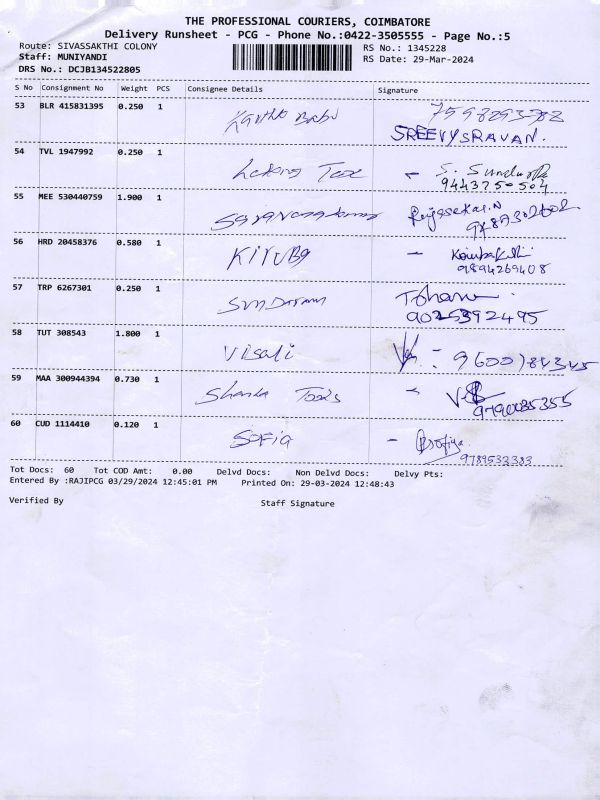 THE PROFESSIONAL COURIERS, COIMBATORE
Delivery Runsheet - PCG - Phone No.:0422-3505555 - Page No.:5
Route: SIVASSAKTHI COLONY
RS No.: 1345228
Staff: MUNIYANDI
RS Date: 29-Mar-2024
DRS No.: DCJB134522805
S No Consignment No Weight PCS Consignee Details Signature
53 BLR 415831395 0.250 1 Babu
SREEVYSRAVAN.
54 TVL 1947992 0.250 1 -
9443750504
55 MEE 530440759 1.900 1
56 HRD 20458376 0.580 1 Kiruba -
9894269408
57 TRP 6267301 0.250 1 Sundaram
9025392495
58 TUT 308543 1.800 1 Visali
59 MAA 300944394 0.730 1 Tools -
9790035355
60 CUD 1114410 0.120 1 Sofia -
9789532383
Tot Docs: 60 Tot COD Amt: 0.00 Delvd Docs: Non Delvd Docs: Delvy Pts:
Entered By :RAJIPCG 03/29/2024 12:45:01 PM Printed On: 29-03-2024 12:48:43
Verified By Staff Signature